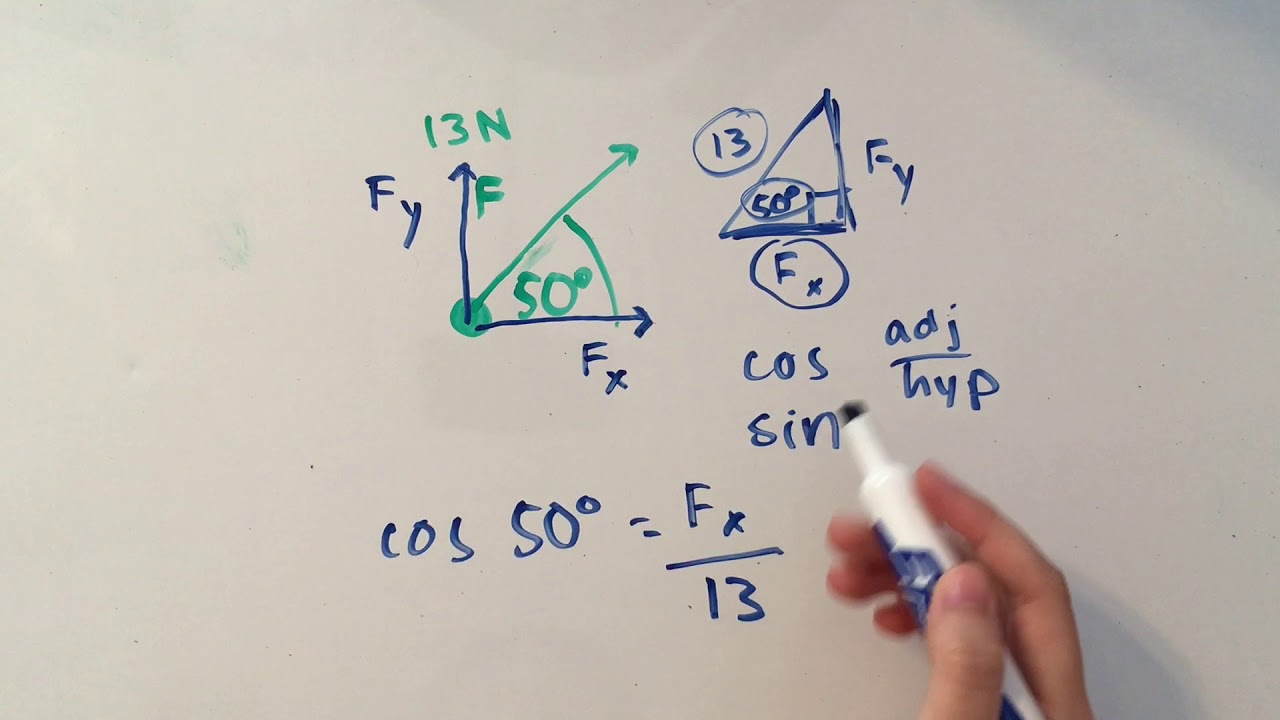 13N
F_y
F
50°
F_x
13
50°
F_y
F_x
cos adj/hyp
sin
cos 50° = F_x/13